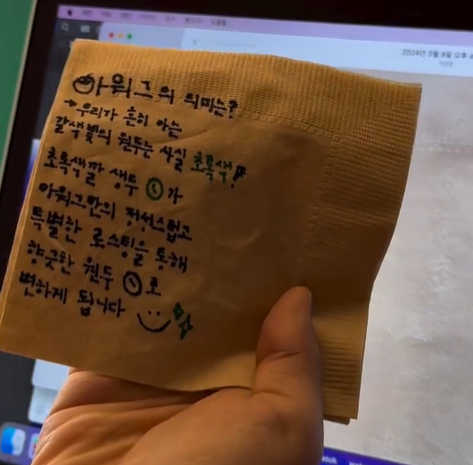 아워그의 의미는?
→ 우리가 흔히 아는
갈색빛의 원두는 사실 초록색!!
초록색깔 생두 가
아워그만의 정성스럽고
특별한 로스팅을 통해
향긋한 원두 로
변하게 됩니다